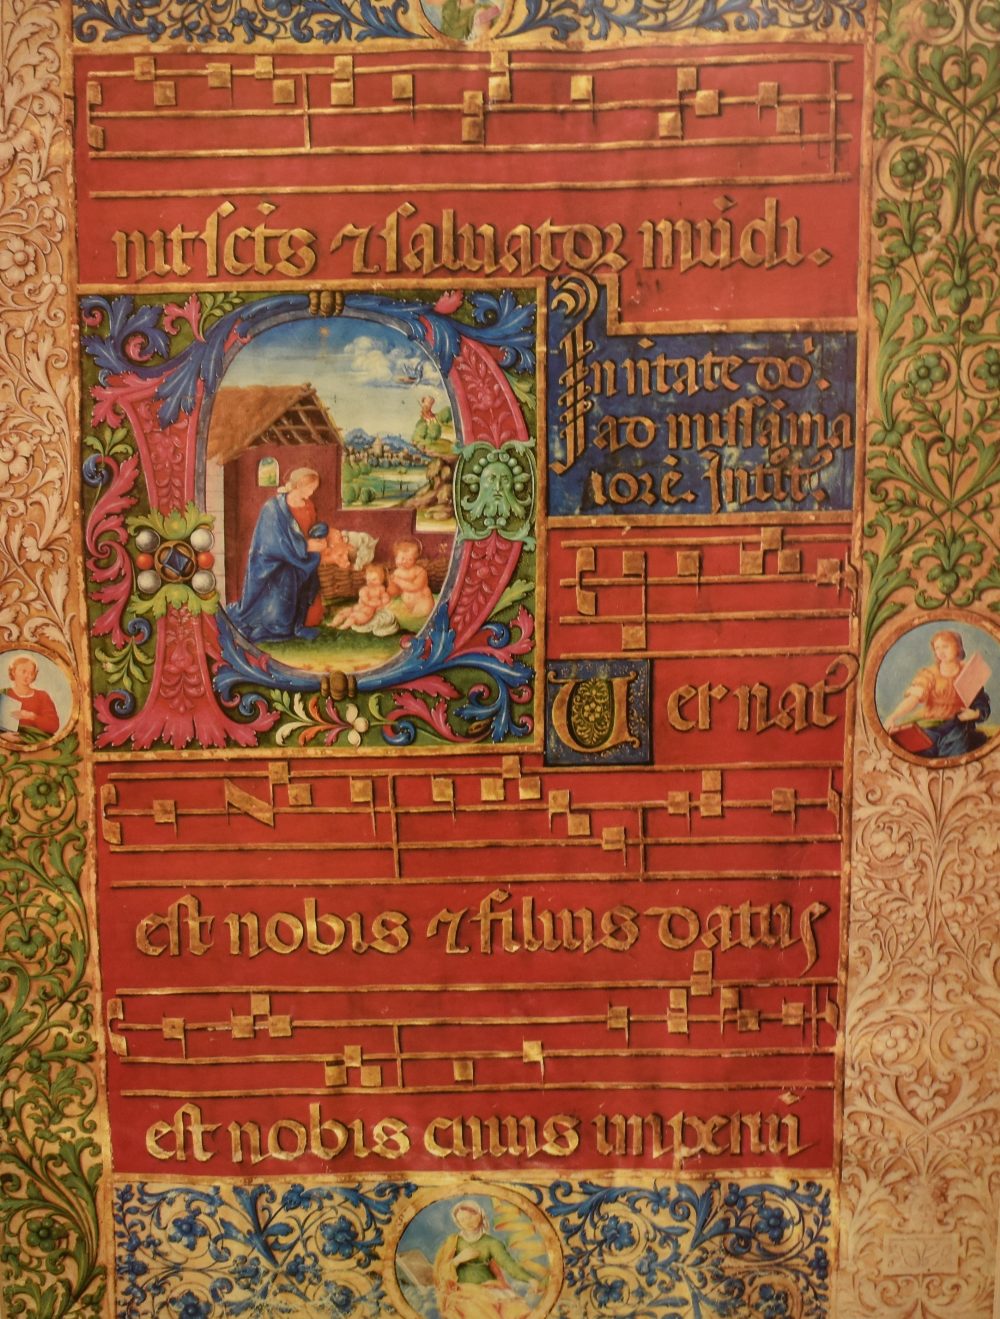 saluator mũdi.
In nitate dñi.
ad missã ma
iorẽ
PUer nat⁹
est nobis ⁊ filius datus
est nobis cuius imperiũ